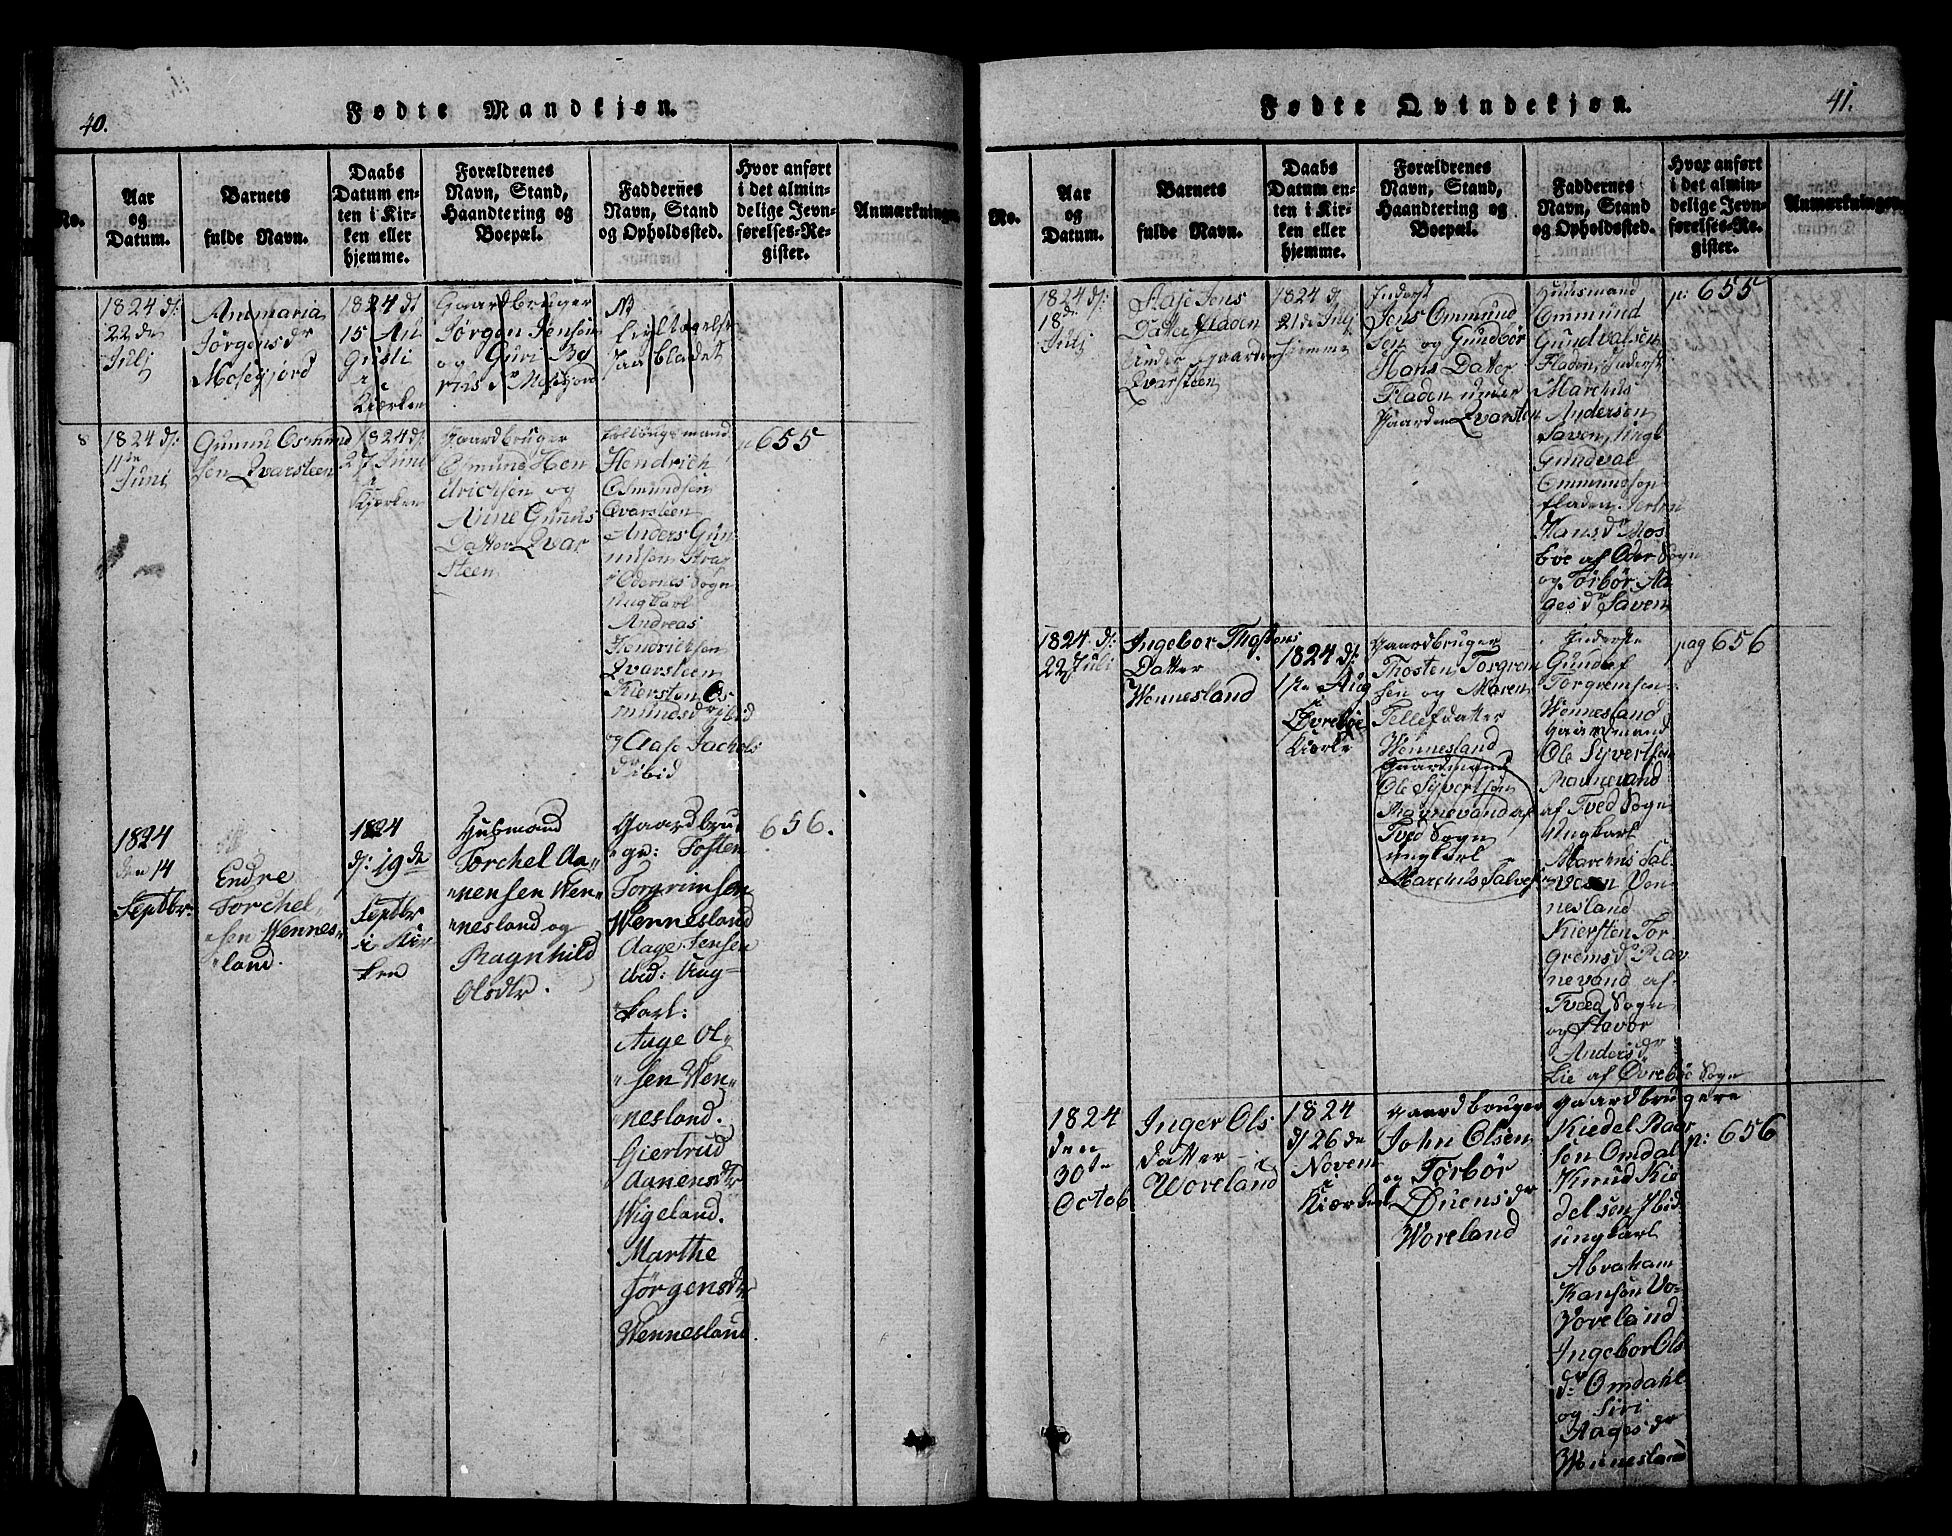 40.
Fødte Mandkjøn.
No.
Aar
og
Datum.
Barnets
fulde Navn.
Daabs
Datum en-
ten i Kir-
ken eller
hjemme.
Forældrenes
Navn, Stand,
Haandtering og
Boepæl.
Faddernes
Navn, Stand
og Opholdssted.
Hvor anført
i det almin-
delige Jevn-
førelses-Re-
gister.
Anmærkninger.
1824 d:
22de
Julj
Anmaria
Jørgensdr
Mosegjord
1824 d
15 Au
gusti
i
Kierken
Gaardbruger
Jørgen Jensen
og Guri
Mosefjord
8
1824 d:
11te
Juni
Gunnu Osmund
sen Qvarsteen
1824 d:
27 Juni
i
Kjerken
Gaardbruger
Osmund Hen
drichsen og
Anne Gunnus
Datter Qvar
steen
Hendrich
Osmundsen
Qvarsteen
Anders Gun
nusen
Odernes Sogn
ungkarl
Andreas
Hendrichsen
Qvarsteen
Kiersten Os
mundsdr ibid
og Aase Jachobs
dr ibid
p 655
1824
den 14
Septbr:
Endre
Torchel-
sen Wennes-
land.
1824
d: 19de
Septbr
i Kir
ken
Husmand
Torchel Aa-
nensen Wen-
nesland og
Ragnhild
Olsdtr.
Gaardbru
ge: Tosten
Torgrimsen
Wennesland
Aage Jensen
ibid: Ung-
karl:
Aage Ol-
sen Wen-
nesland.
Giertrud
Aanensdtr
Wigeland.
Marthe
Jørgensdtr
Wennesland.
656.
41.
Fødte Qvindekjøn.
No.
Aar
og
Datum.
Barnets
fulde Navn.
Daabs
Datum en-
ten i Kir-
ken eller
hjemme.
Forældrenes
Navn, Stand,
Haandtering og
Boepæl.
Faddernes
Navn, Stand
og Opholdssted.
Hvor anført
i det almin-
delige Jevn-
førelses-Re-
gister.
Anmærkninger.
1824 d:
18de
Julj
Aase Jens
Datter Fladen
Under Gaarden
Qvarsteen
1824 d
21de Julj
hiemme
Inderst
Jens Ommund
sen og Gundbør
Hans Datter
Fladen under
Gaarden Qvarsten
Huusmand
Ommund
Gundvalsen
Fladen, Inderst
Marchus
Andersen
Saven, ungk
Gundval
Ommundsen
fladen.
Hansdr Mos
bøe af Oder Sogn
og Torbør Aa
gesdr Saven
p: 655
1824 d:
22 Juli
Ingebor Thostens
Datter
Wennesland
1824 d:
1te Aug
Øvrebøe
Kierke
Gaardbruger
Thosten Torgrem
sen og Maren
Tellefdatter
Wennesland
Gaardmand
Ole Syvertsen
Ragnevand af
Tved Sogn
ungkarl
Marchus Salves
Inderste
Gundef
Torgremsen
Wennesland
Gaardmand
Ole Syvertsen
Ravnevand
af Tved Sogn
Ungkarl
Marchus Sal
vesen Ven
nesland
Kiersten Tor
gremsdr Rav
nevand af
Tved Sogn
og Stavør
Andersdr
Lie af Øvrebøe Sogn
pag 656
1824
den
30te
Octob
Inger Ols
datter
Woreland
1824
d 26de
Novem
i
Kierken
Gaardbruger
John Olsen
og Torbør
Ønensdr
Woreland
Gaardbrugere
Kiedel Baar
sen Omdal
Knud Kie
delsen Ibid
ungkarl
Abraham
Hansen Vo-
Voreland
Ingebor Ols
dr Omdahl
og Siri
Aagesdr
Wennesland
p: 656